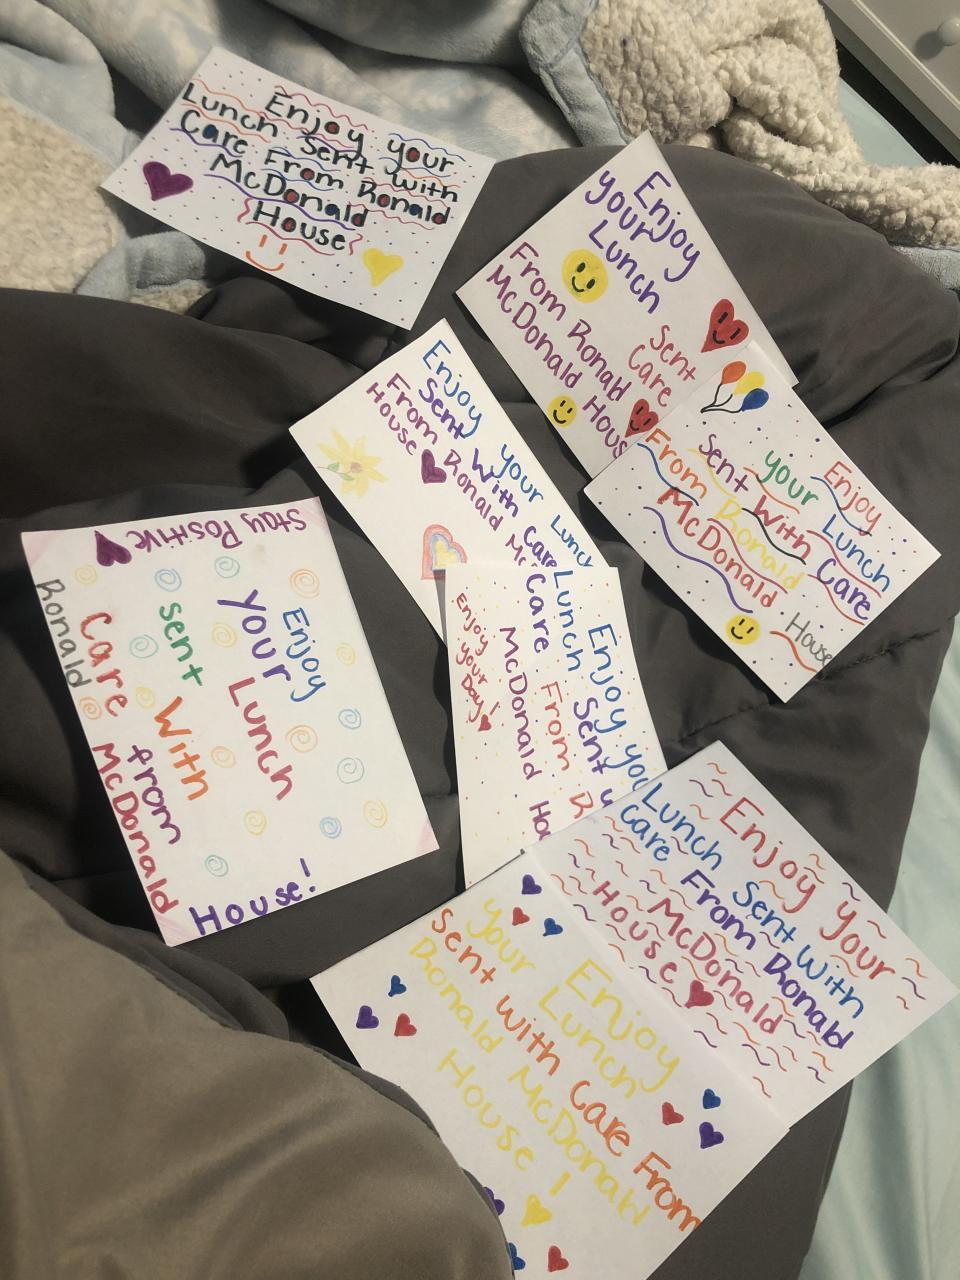 Enjoy your
Lunch Sent with
Care From Ronald
McDonald
House
Enjoy
your
Lunch
Sent
Care
From Ronald
McDonald Hous
Enjoy your Lunch
Sent With Care
From Ronald Mc
House
Enjoy
your Lunch
Sent With Care
From Ronald
McDonald
House
Stay Positive
Enjoy
your Lunch
sent With
Care from
Ronald McDonald
House!
Enjoy you
Lunch Sent w
Care From
McDonald Ho
Enjoy your Day!
Enjoy your
Lunch Sent With
Care From Ronald
McDonald
House
Enjoy
your Lunch
Sent with Care From
Ronald McDonald
House!